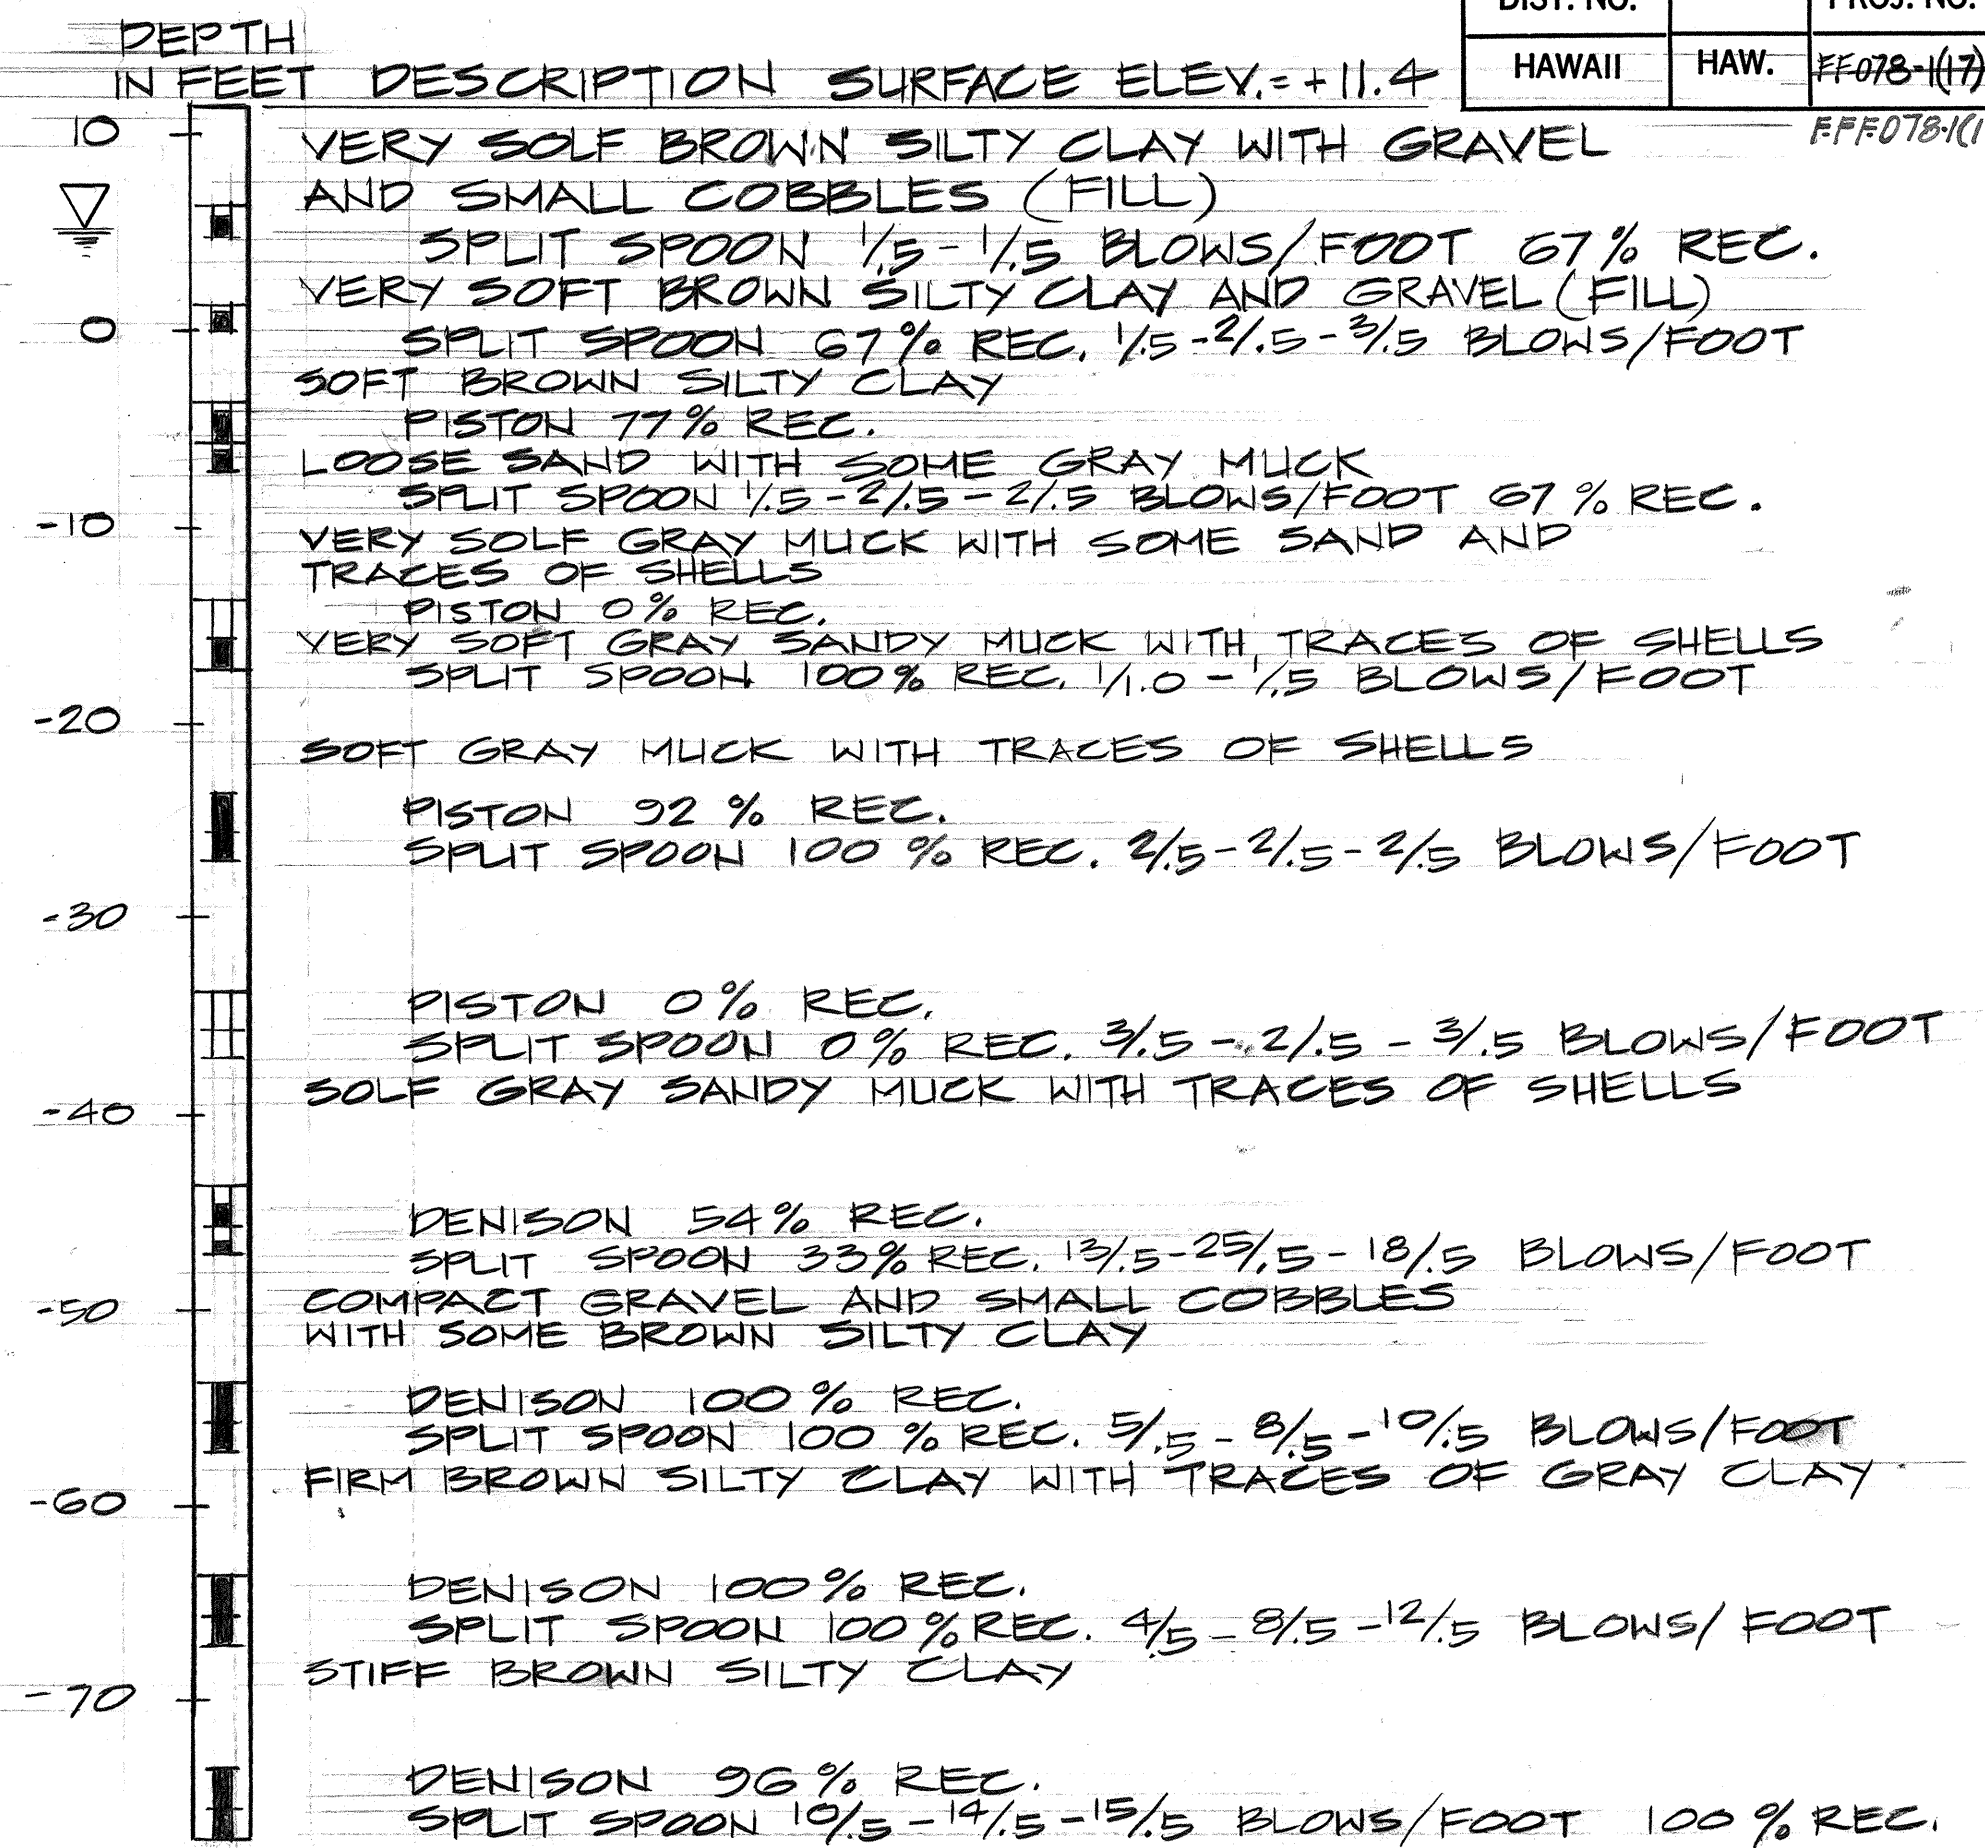 DIST. NO. PROJ. NO.
HAWAII HAW. FF078-1(17)
F.FF.078-1(1
DEPTH
IN FEET DESCRIPTION SURFACE ELEV.= +11.4
10 VERY SOLF BROWN SILTY CLAY WITH GRAVEL
AND SMALL COBBLES (FILL)
SPLIT SPOON 1/.5 - 1/.5 BLOWS/FOOT 67% REC.
VERY SOFT BROWN SILTY CLAY AND GRAVEL (FILL)
0 SPLIT SPOON 67% REC. 1/.5 - 2/.5 - 3/.5 BLOWS/FOOT
SOFT BROWN SILTY CLAY
PISTON 77% REC.
LOOSE SAND WITH SOME GRAY MUCK
SPLIT SPOON 1/.5 - 2/.5 - 2/.5 BLOWS/FOOT 67% REC.
-10 VERY SOLF GRAY MUCK WITH SOME SAND AND
TRACES OF SHELLS
PISTON 0% REC.
VERY SOFT GRAY SANDY MUCK WITH TRACES OF SHELLS
SPLIT SPOON 100% REC. 1/1.0 - 1/.5 BLOWS/FOOT
-20
SOFT GRAY MUCK WITH TRACES OF SHELLS
PISTON 92% REC.
SPLIT SPOON 100% REC. 2/.5 - 2/.5 - 2/.5 BLOWS/FOOT
-30
PISTON 0% REC.
SPLIT SPOON 0% REC. 3/.5 - 2/.5 - 3/.5 BLOWS/FOOT
SOLF GRAY SANDY MUCK WITH TRACES OF SHELLS
-40
DENISON 54% REC.
SPLIT SPOON 33% REC. 13/.5 - 25/.5 - 18/.5 BLOWS/FOOT
-50 COMPACT GRAVEL AND SMALL COBBLES
WITH SOME BROWN SILTY CLAY
DENISON 100% REC.
SPLIT SPOON 100% REC. 5/.5 - 8/.5 - 10/.5 BLOWS/FOOT
FIRM BROWN SILTY CLAY WITH TRACES OF GRAY CLAY
-60
DENISON 100% REC.
SPLIT SPOON 100% REC. 4/.5 - 8/.5 - 12/.5 BLOWS/FOOT
STIFF BROWN SILTY CLAY
-70
DENISON 96% REC.
SPLIT SPOON 10/.5 - 14/.5 - 15/.5 BLOWS/FOOT 100% REC.